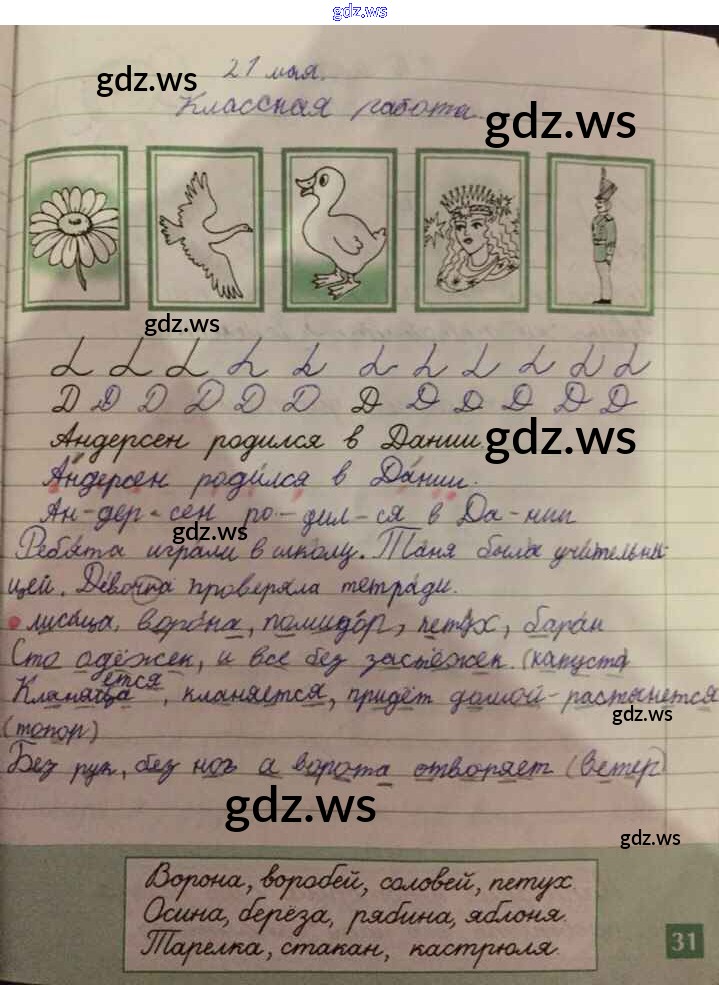 gdz.ws
gdz.ws
21 мая.
Классная работа.
gdz.ws
gdz.ws
Д Д Д Д Д Д Д Д Д Д Д
gdz.ws
Андерсен родился в Дании.
Андерсен родился в Дании.
Ан-дер-сен ро-дил-ся в Да-нии
gdz.ws
Ребята играли в школу. Таня была учительни-
цей. Девочка проверяла тетради.
лисица, ворона, помидор, петух, баран
Сто одёжек, и все без застёжек. (капуста)
ется
Кланяцца, кланяется, придёт домой - растянется
gdz.ws
(топор)
Без рук, без ног а ворота отворяет (ветер)
gdz.ws
gdz.ws
Ворона, воробей, соловей, петух.
Осина, берёза, рябина, яблоня.
Тарелка, стакан, кастрюля.
31